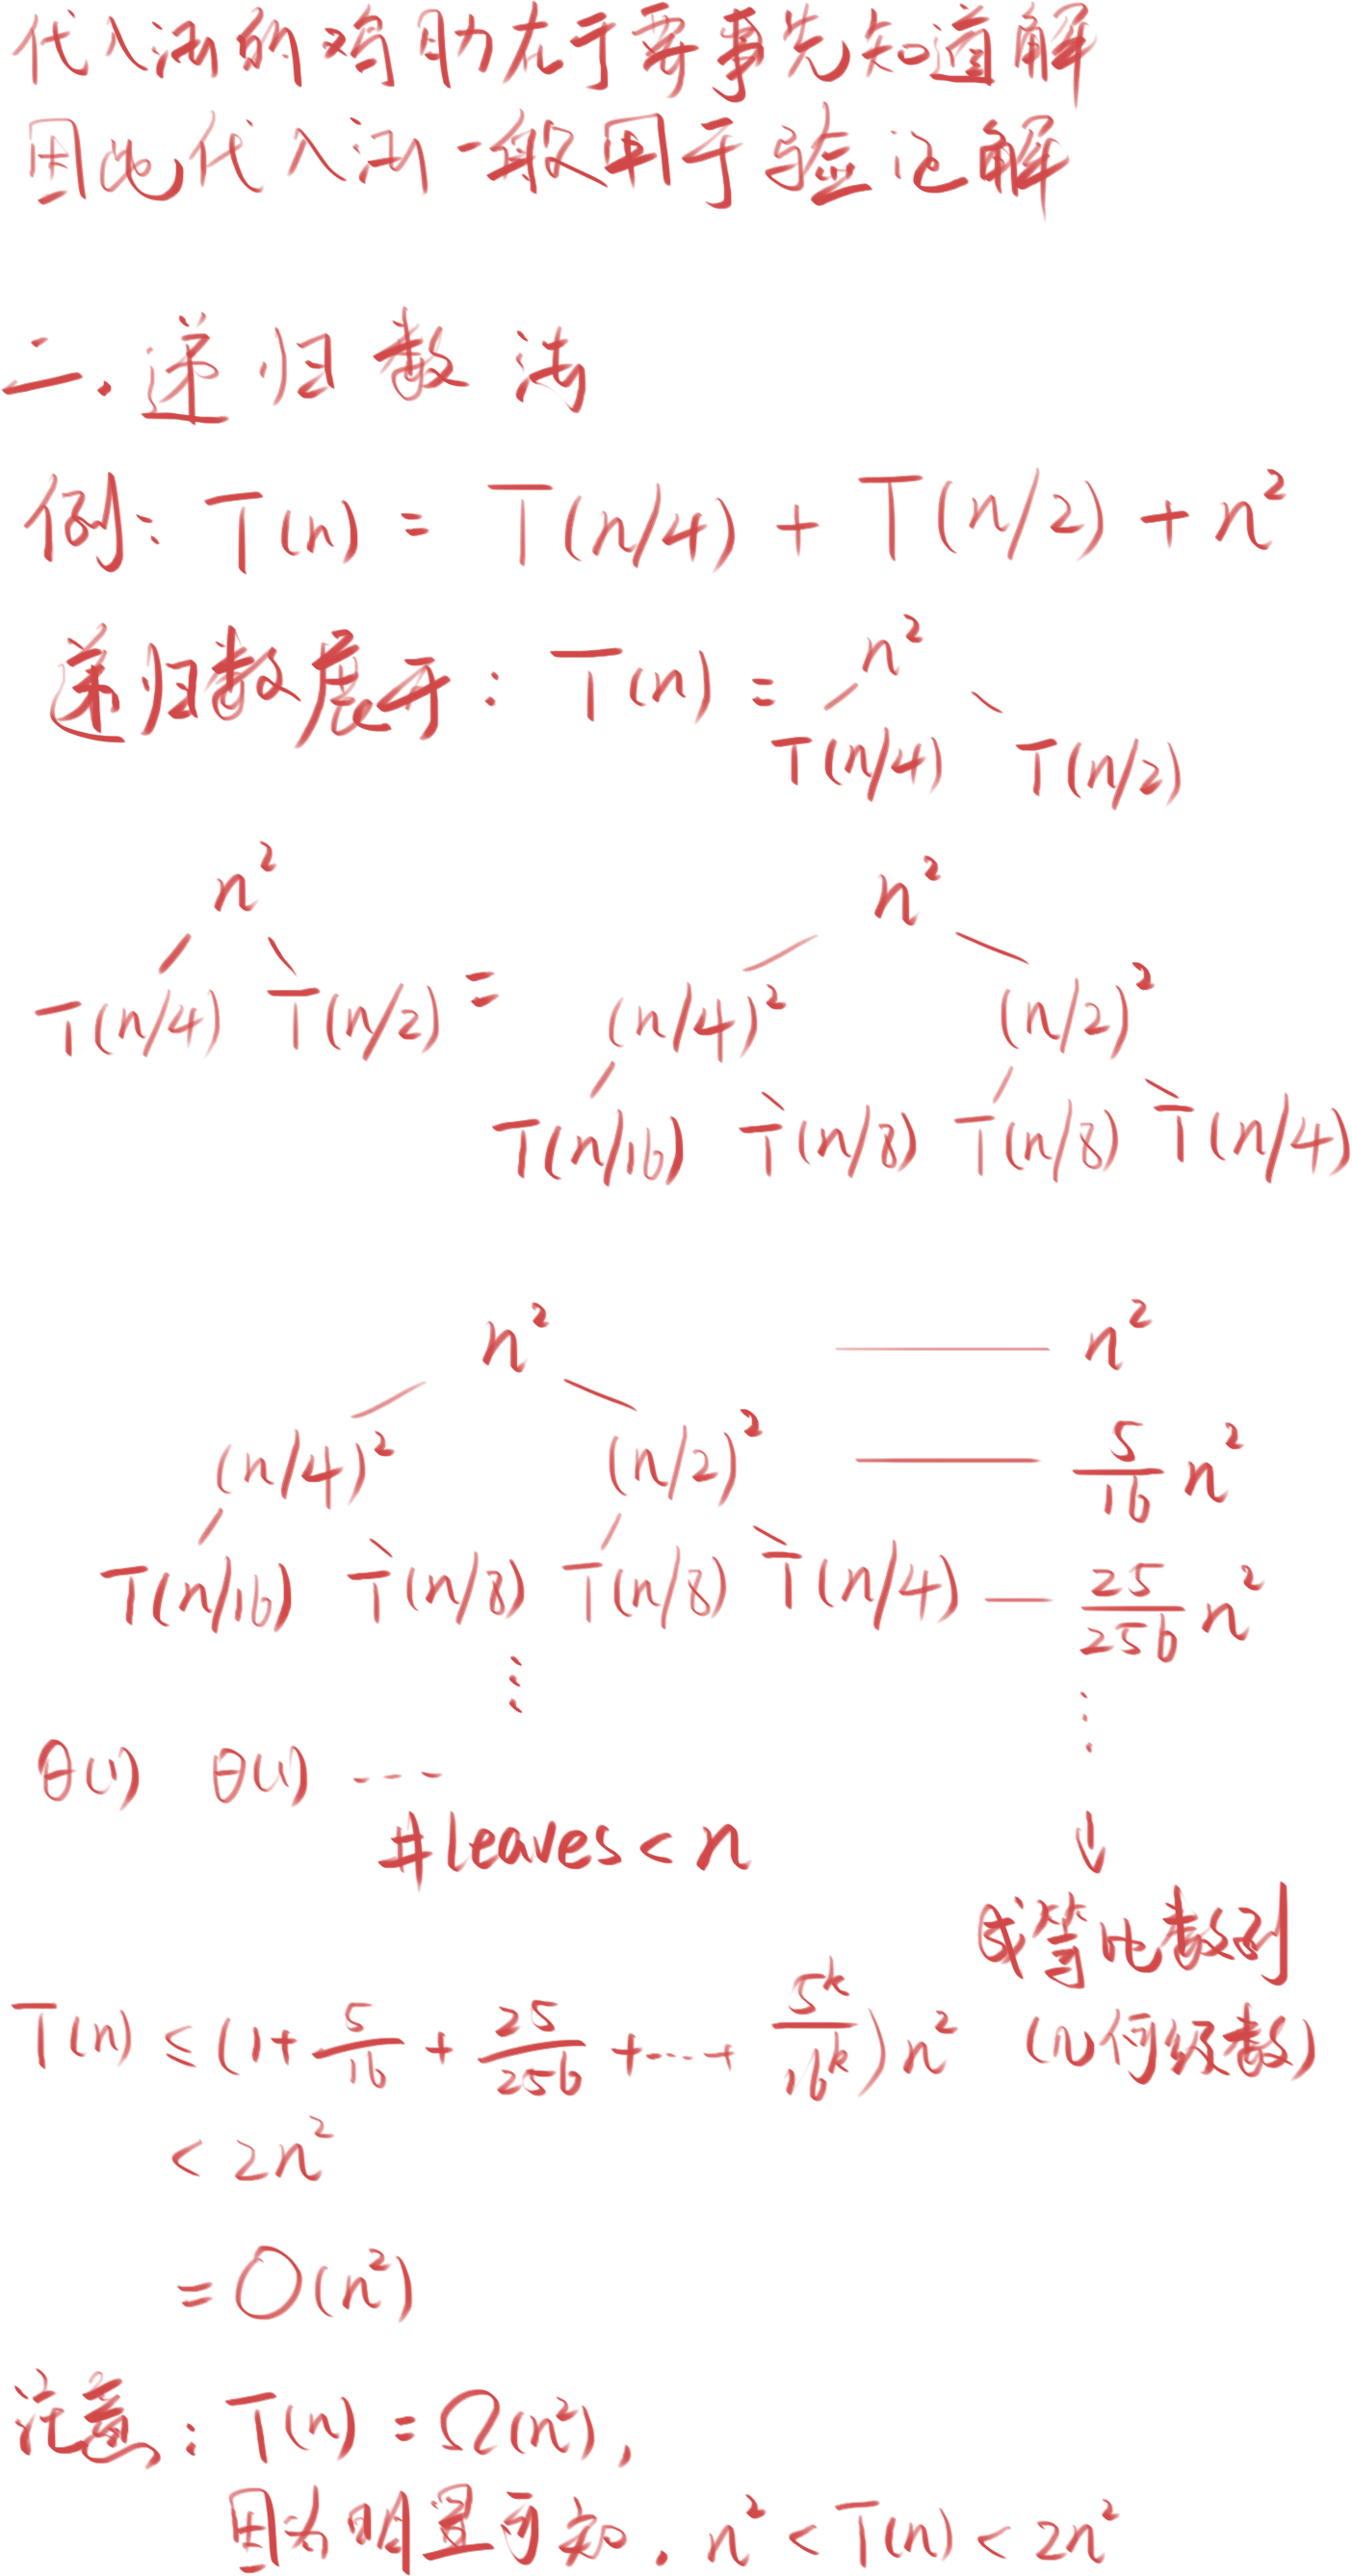 代入法的弱肋在于要事先知道解
因此代入法一般用于验证解
二.递归数法
例: T(n) = T(n/4) + T(n/2) + n²
递归数展开: T(n) = n²
T(n/4) T(n/2)
n² n²
T(n/4) T(n/2) = (n/4)² (n/2)²
T(n/16) T(n/8) T(n/8) T(n/4)
n² —— n²
(n/4)² (n/2)² —— 5/16 n²
T(n/16) T(n/8) T(n/8) T(n/4) — 25/256 n²
⋮ ⋮
θ(1) θ(1) ---
#leaves < n ↓
成等比数列
T(n) ≤ (1 + 5/16 + 25/256 + ... + 5^k/16^k) n² (几何级数)
< 2n²
= O(n²)
注意: T(n) = Ω(n²),
因为明显可知. n² < T(n) < 2n²